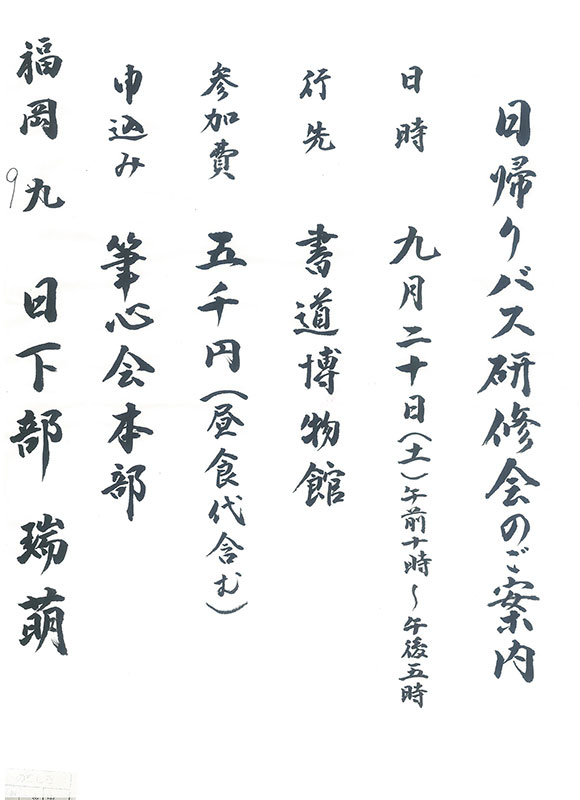 日帰りバス研修会のご案内
日時 九月二十日(土)午前十時～午後五時
行先 書道博物館
参加費 五千円(昼食代含む)
申込み 筆心会本部
福岡 九 日下部 瑞萌
9